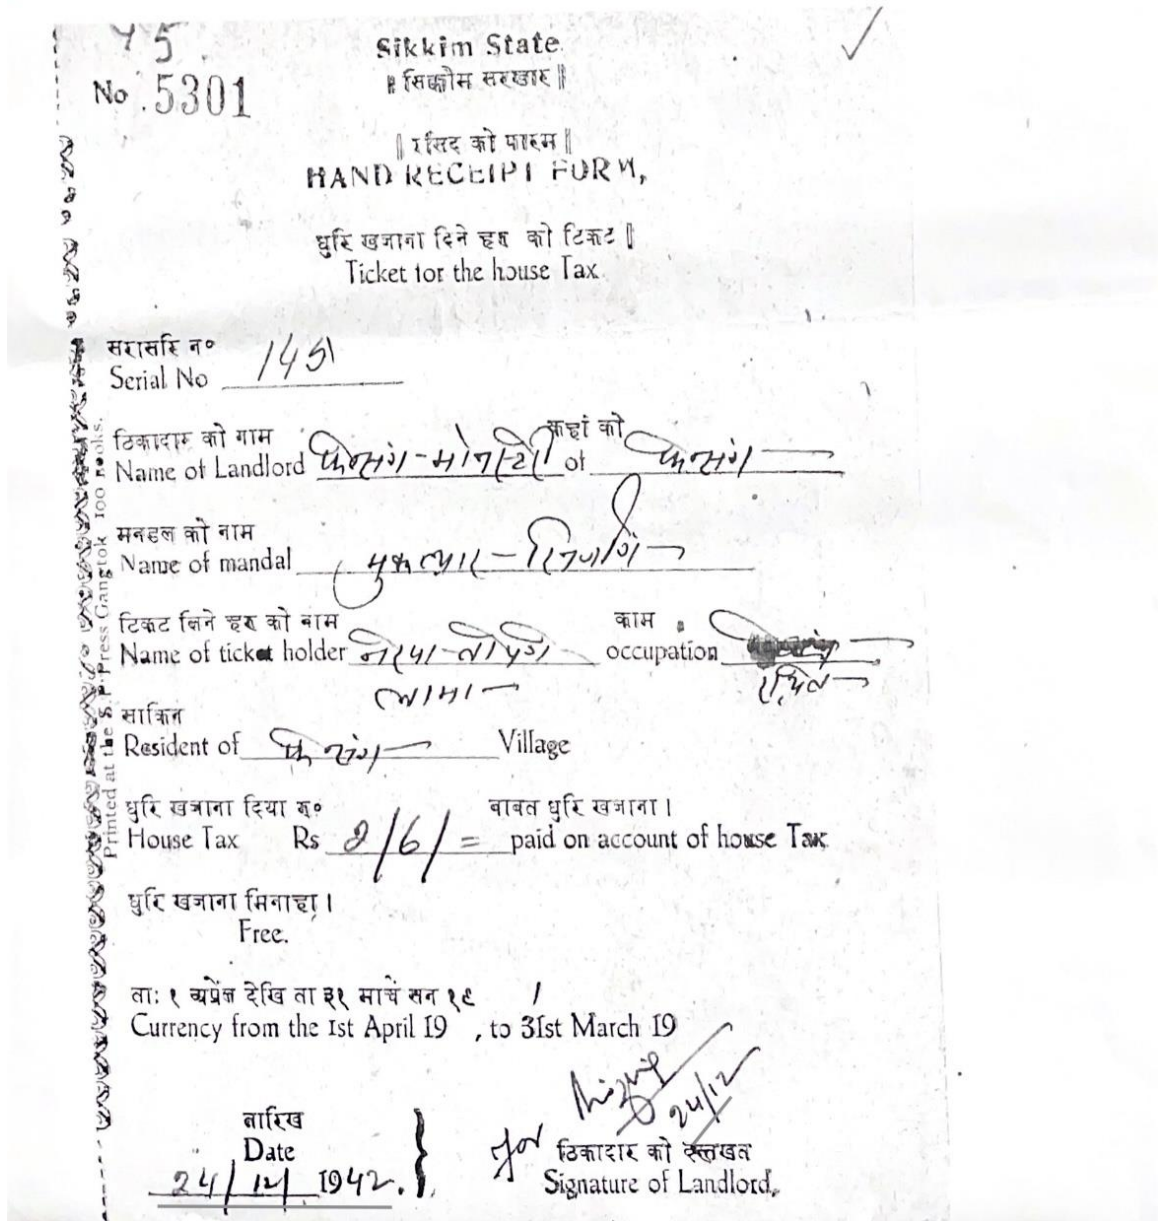 45
No. 5301
Sikkim State
॥ सिक्कीम सरकार ॥
॥ रसिद को फारम ॥
HAND RECEIPT FORM,
धुरि खजाना दिने हरु को टिकट ॥
Ticket for the house Tax.
सरासरि न०
Serial No 145
ठिकादार को नाम कहां को
Name of Landlord फेन्संग - मोनास्टी of फेन्संग
मनडल को नाम
Name of mandal मुक्त्यार -
टिकट लिने हरु को नाम काम
Name of ticket holder occupation
लामा
साकिन
Resident of फेन्संग Village
धुरि खजाना दिया रु० बाबत धुरि खजाना ।
House Tax Rs 2/6/= paid on account of house Tax
धुरि खजाना मिनाहा ।
Free.
ता: १ अप्रेल देखि ता ३१ मार्च सन १९
Currency from the 1st April 19 , to 31st March 19
24/12
तारिख
Date
for ठिकादार को दस्तखत
24/12/1942. Signature of Landlord,
Printed at the S. P. Press Gangtok 100 books.